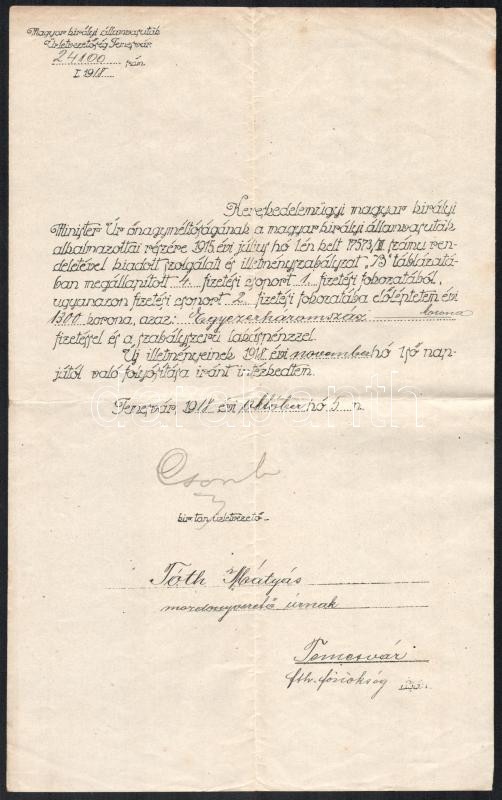 Magyar királyi államvasutak
Üzletvezetőség Temesvár.
24100 szám.
I. 1918
Kereskedelemügyi magyar királyi
Minister Úr őnagyméltóságának a magyar királyi államvasutak
alkalmazottai részére 1915 évi július hó 1.én kelt 17573/III számu ren-
deletével kiadott szolgálati és illetményszabályzat "73" táblázatá-
ban megállapított 4. fizetési csoport 1. fizetési fokozatából,
ugyanazon fizetési csoport 2. fizetési fokozatába előléptetem évi
1300 korona, azaz: Egyezerháromszáz korona
fizetéssel és a szabályszerü lakáspénzzel.
Új illetményeinek 1918 évi november hó 1ső nap-
jától való folyósítása iránt intézkedtem.
Temesvár, 1918 évi október hó 5 n.
Csonk
kir. tan. üzletvezető.
Tóth Mátyás
mozdonyvezető úrnak
Temesvár
fth. főnökség